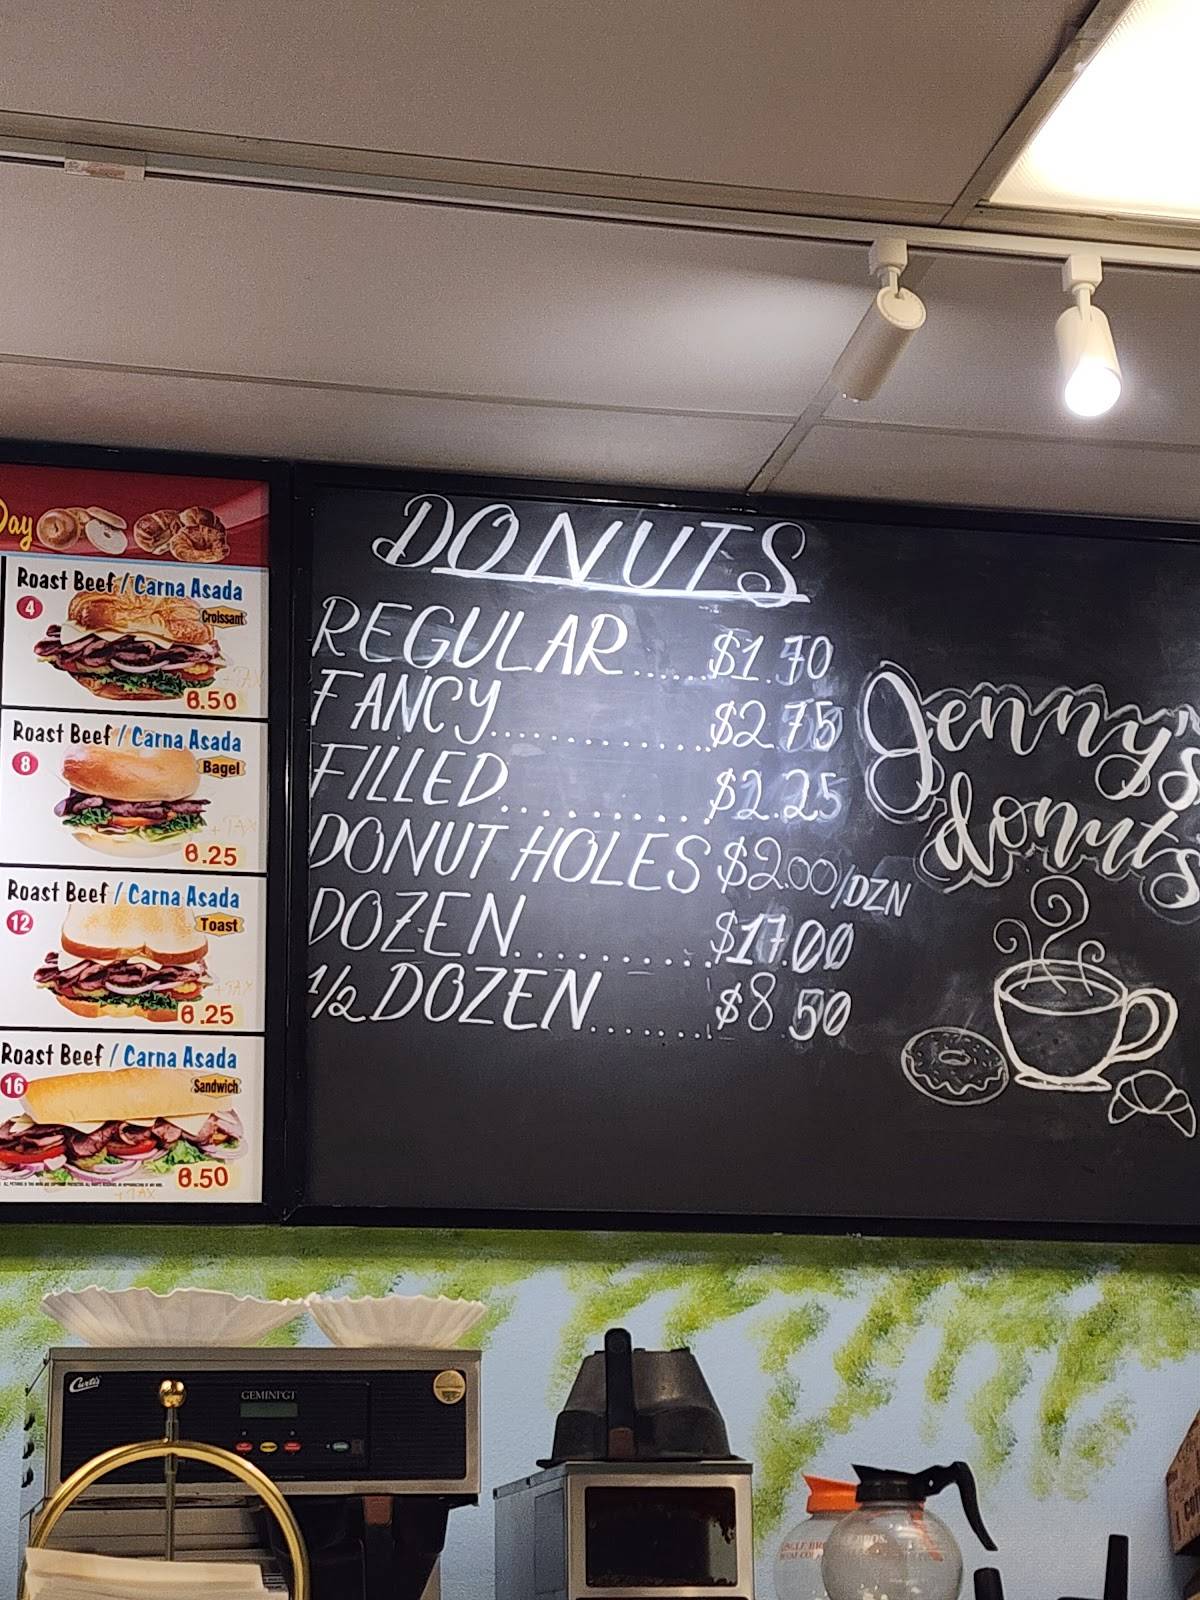 Day
Roast Beef / Carna Asada
4
Croissant
+ TAX
6.50
Roast Beef / Carna Asada
8
Bagel
+ TAX
6.25
Roast Beef / Carna Asada
12
Toast
+ TAX
6.25
Roast Beef / Carna Asada
16
Sandwich
6.50
+ TAX
DONUTS
REGULAR......$1.70
FANCY.............$2.75
FILLED............$2.25
DONUT HOLES $2.00/DZN
DOZEN............$17.00
1/2 DOZEN.......$8.50
Jenny's
donuts
Curtis
GEMINI GT